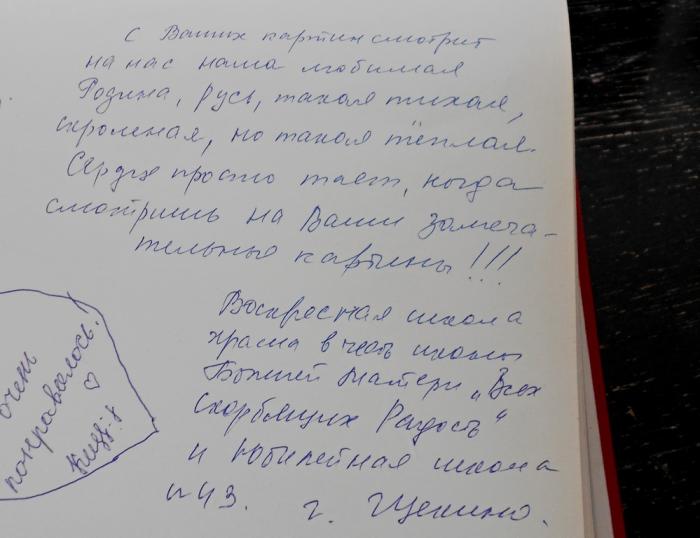 с Ваших картин смотрит
на нас наша любимая
Родина, Русь, такая тихая,
скромная, но такая тёплая.
Сердце просто тает, когда
смотришь на Ваши замеча-
тельные картины!!!
Воскресная школа
храма в честь иконы
Божией Матери „Всех
Скорбящих Радость“
и Юбилейная школа
н 43. г. Щекино.
очень
понравилось!
♡